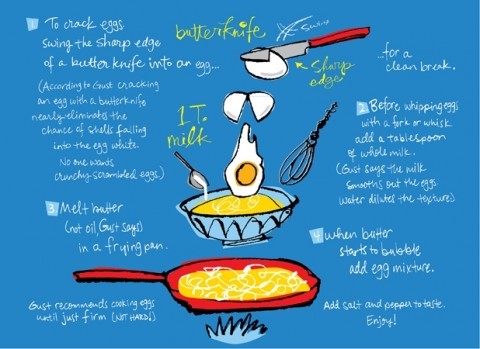 1 To crack eggs
swing the sharp edge
of a butter knife into an egg...
(According to Gust cracking
an egg with a butterknife
nearly eliminates the
chance of shells falling
into the egg white.
No one wants
crunchy scrambled eggs.)
butterknife
swing
sharp
edge
...for a
clean break.
1 T.
milk
2 Before whipping eggs
with a fork or whisk
add a tablespoon
of whole milk.
(Gust says the milk
smooths out the eggs
Water dilutes the texture)
3 Melt butter
(not oil, Gust says)
in a frying pan.
4 when butter
starts to bubble
add egg mixture.
Gust recommends cooking eggs
until just firm (NOT HARD!)
Add salt and pepper to taste.
Enjoy!